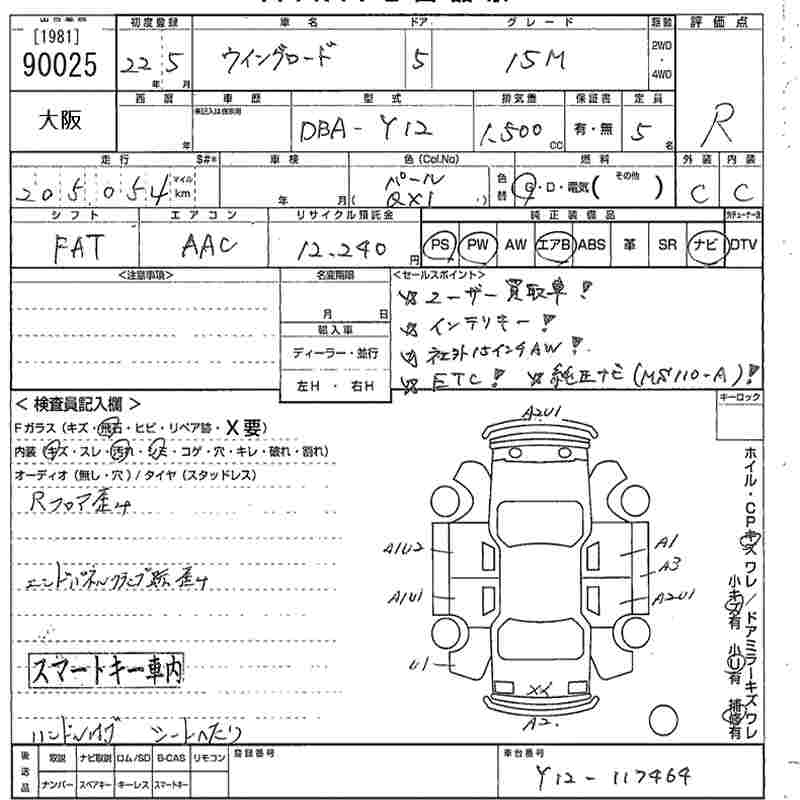 [1981]
90025
大阪
初度登録 車名 ドア グレード 駆動 評価点
22年 5月 ウイングロード 5 15M 2WD・4WD R
西暦 年 車歴 型式 排気量 保証書 定員
DBA-Y12 1,500CC 有・無 5名
走行 S#* 車検 色(Col,No) 燃料 外装 内装
205,054 マイル km 年 月 パール 色替 G・D・電気( その他 ) C C
( QX1 )
シフト エアコン リサイクル預託金 純正装備品
FAT AAC 12,240円 PS PW AW エアB ABS 革 SR ナビ DTV
<注意事項>
名変期限
月 日
輸入車
ディーラー・並行
左H・右H
<セールスポイント>
☆ユーザー買取車!
☆インテリキー!
☆社外15インチAW!
☆ETC! ☆純正ナビ(MS110-A)!
キーロック
<検査員記入欄>
Fガラス(キズ・飛石・ヒビ・リペア跡・X要)
内装(キズ・スレ・汚れ・シミ・コゲ・穴・キレ・破れ・割れ)
オーディオ(無し・穴)/タイヤ(スタッドレス)
Rフロア歪み
エンドパネルクランプ跡歪み
スマートキー車内
ハンドルハゲ シートへたり
A2U1
A1U2
A1
A3
A1U1
A2U1
U1
XL
A2.
ホイル・CPキズワレ/ドアミラーキズワレ
小キズ有 小U有 補修有
後送品 取説 ナビ取説 ロム/SD B-CAS リモコン
ナンバー スペアキー キーレス スマートキー
登録番号
車台番号
Y12-117464